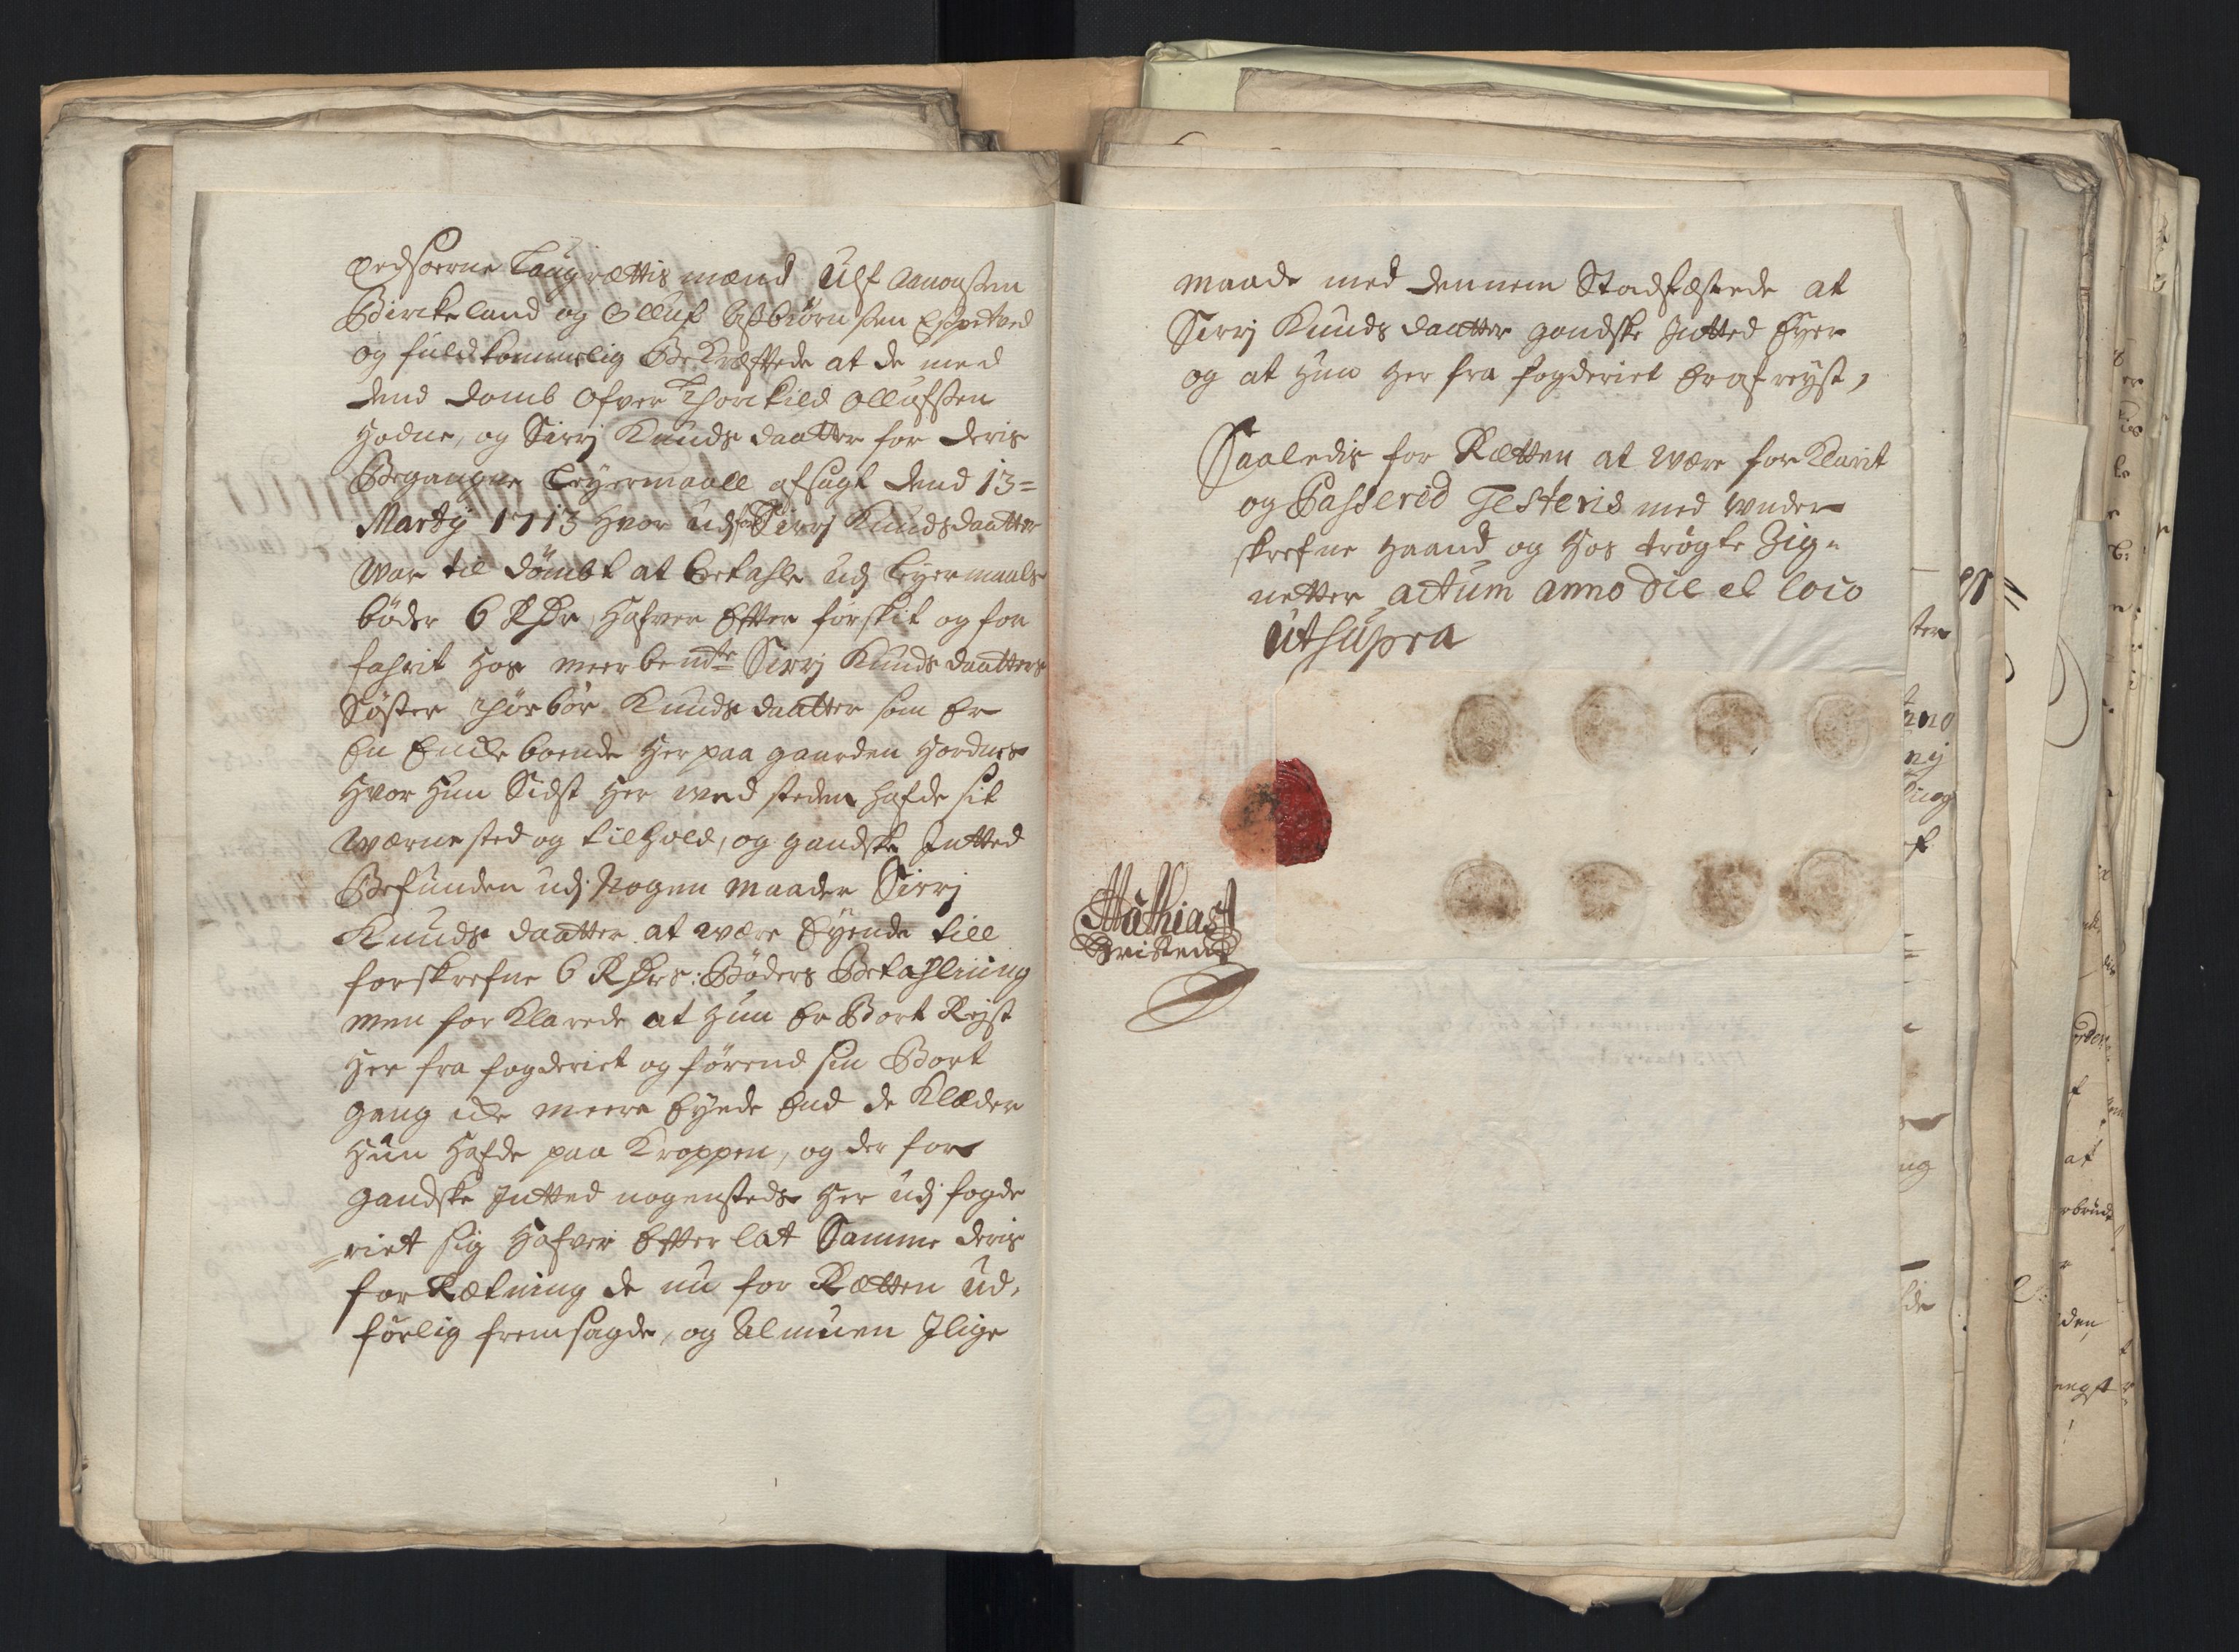 Eedsoerne Laugrættis mænd Ulf Amonsen
Birckeland og Olluf Asbiørnsen Espetved
og fuldkommelig Bekræftede at de med
dend domb ofver Thorckild Ollufsen
Hodne, og Sirrj Knuds daatter for deris
Begangne Leyermaall afsagt dend 13=
Martij 1713 hvor udj Sirrj Knudsdaatter
War til dömbt at betahle udj Leyermaals
böder 6 Rdr, hafver Efter forskit og for
fahrit hos meerbemte Sirrj Knudsdaatters
Söster Thorbór Knudsdaatter som Er
En Encke boende her paa gaarden Hordnes
hvor hun Sidst her ved steden hafde sit
Wærnested og tilhold, og gandske Intted
Befunden udj Nogen maader Sirrj
Knuds daatter at være Eyende till
forskrefne 6 Rdrs: Böders Betahling
men for Klarede at hun Er Bort Rejst
her fra fogderiet og förend sin Bort
gang icke meere Eyede End de Klæder
hun hafde paa Kroppen, og der for
gandske Intted nogensteds her udj fogde
=riet sig hafver Efterlat Samme deris
for Rætning de nu for Rætten ud,
förlig fremsagde, og Almuen Ilige
maade med dennem Stadfæstede at
Sirrj Knuds daatter gandske Intted Eyer
og at hun her fra fogderiet Er af reyst,
Saaledis for Rætten at være for Klarit
og Passerid Testeris med under
skrefne haand og hos trögte Zig=
netter actum anno die et loco
utsupra
Mathias